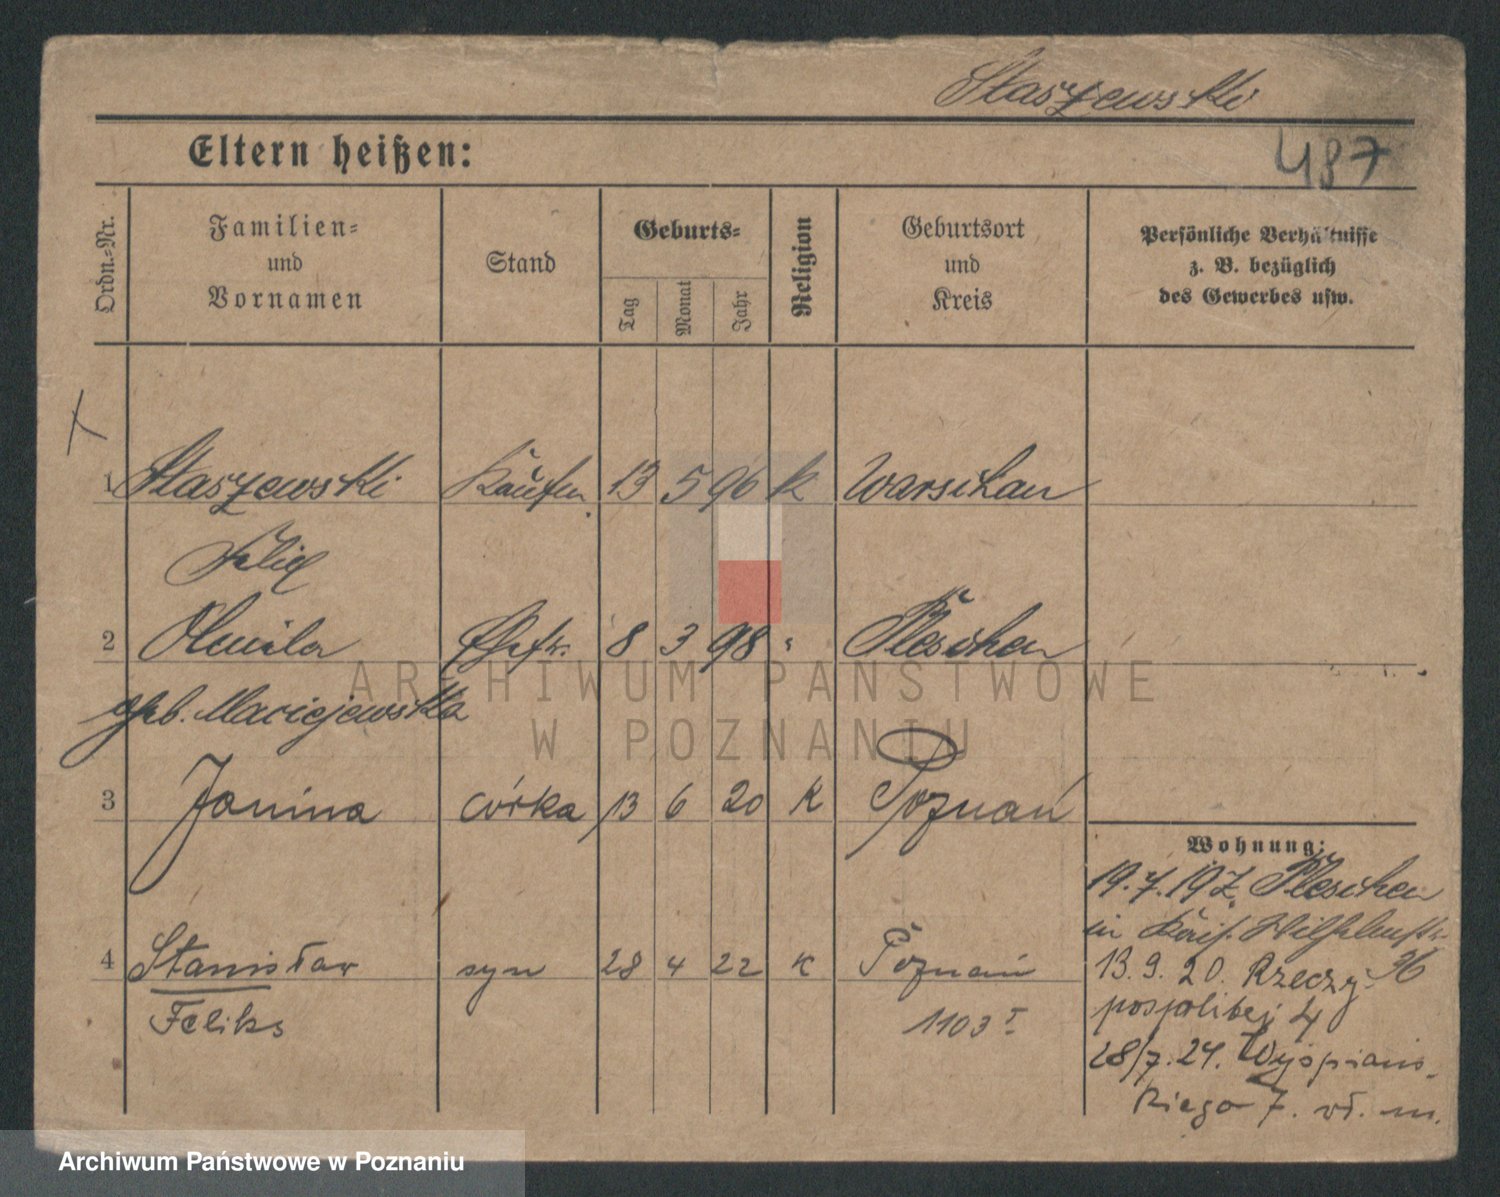 Staszewski
487
Eltern heißen:
Ordn.-Nr.
Familien-
und
Vornamen
Stand
Geburts-
Tag
Monat
Jahr
Religion
Geburtsort
und
Kreis
Persönliche Verhältnisse
z. B. bezüglich
des Gewerbes usw.
1 Staszewski Kaufm. 13 5 96 k Warschau
Felix
2 Ludmila Ehefr. 8 3 98 " Pleschen
geb. Maciejewska
3 Janina córka 13 6 20 K Poznań
4 Stanisław syn 28 4 22 K Poznań
Feliks
1103 I
Wohnung:
19.7.19 Pleschen
in Kais. Wilhelmstr.
36
13.9.20. Rzeczy-
pospolitej 4
28/7.24. Wyspiańs-
kiego 7. m.
ARCHIWUM PAŃSTWOWE
W POZNANIU
Archiwum Państwowe w Poznaniu